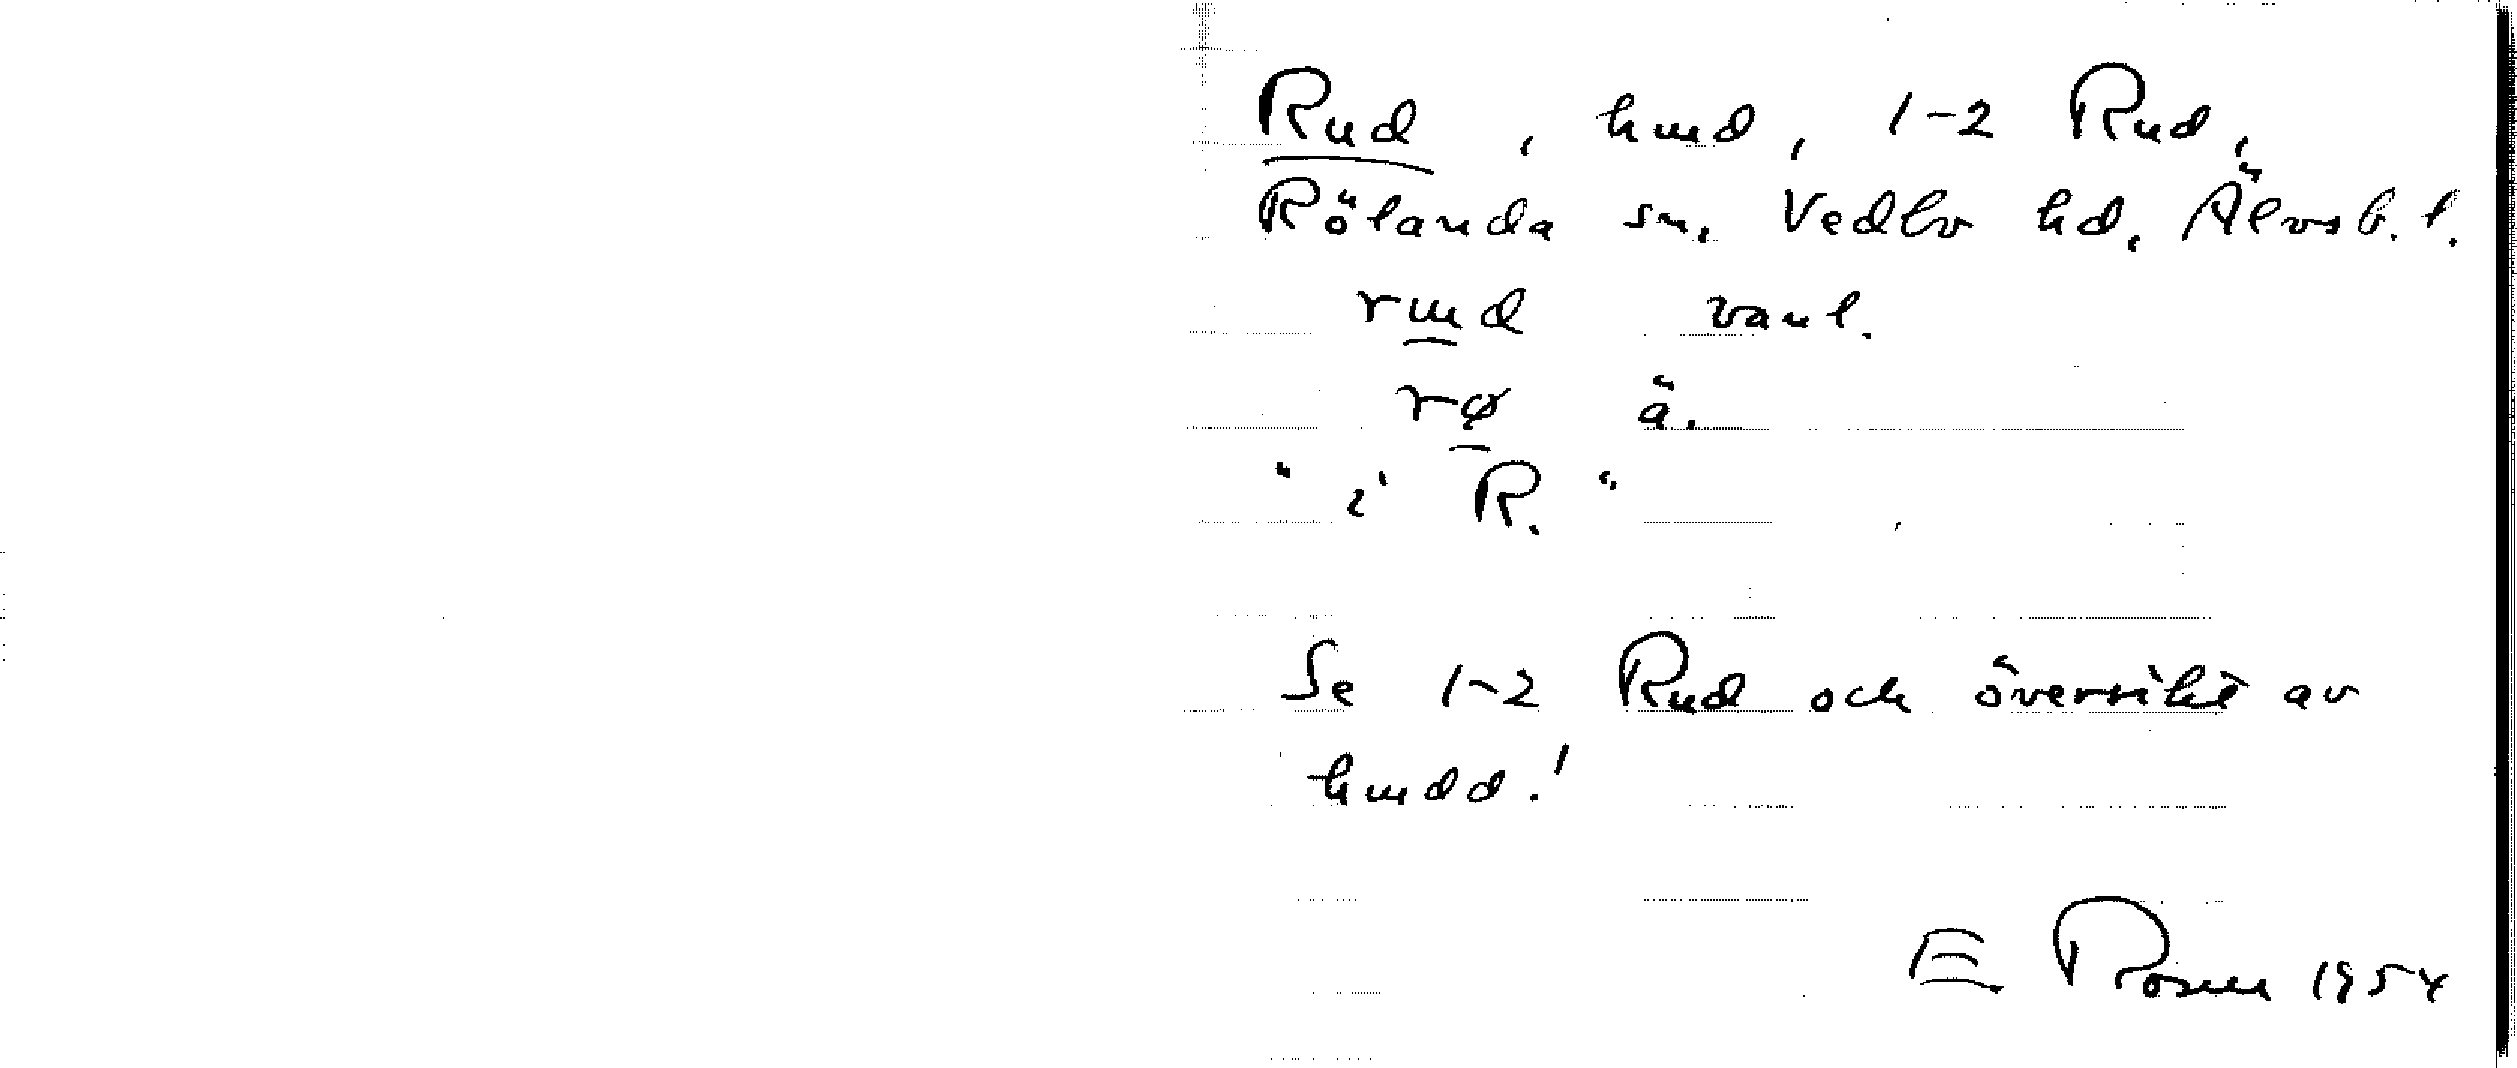 Rud, hmd, 1-2 Rud,
Rölanda sn, Vedbo hd, Älvsb. l.
rɯd vanl.
rø ä.
"i R."
Se 1-2 Rud och översikt av
hmdd!
E Rosen 1954